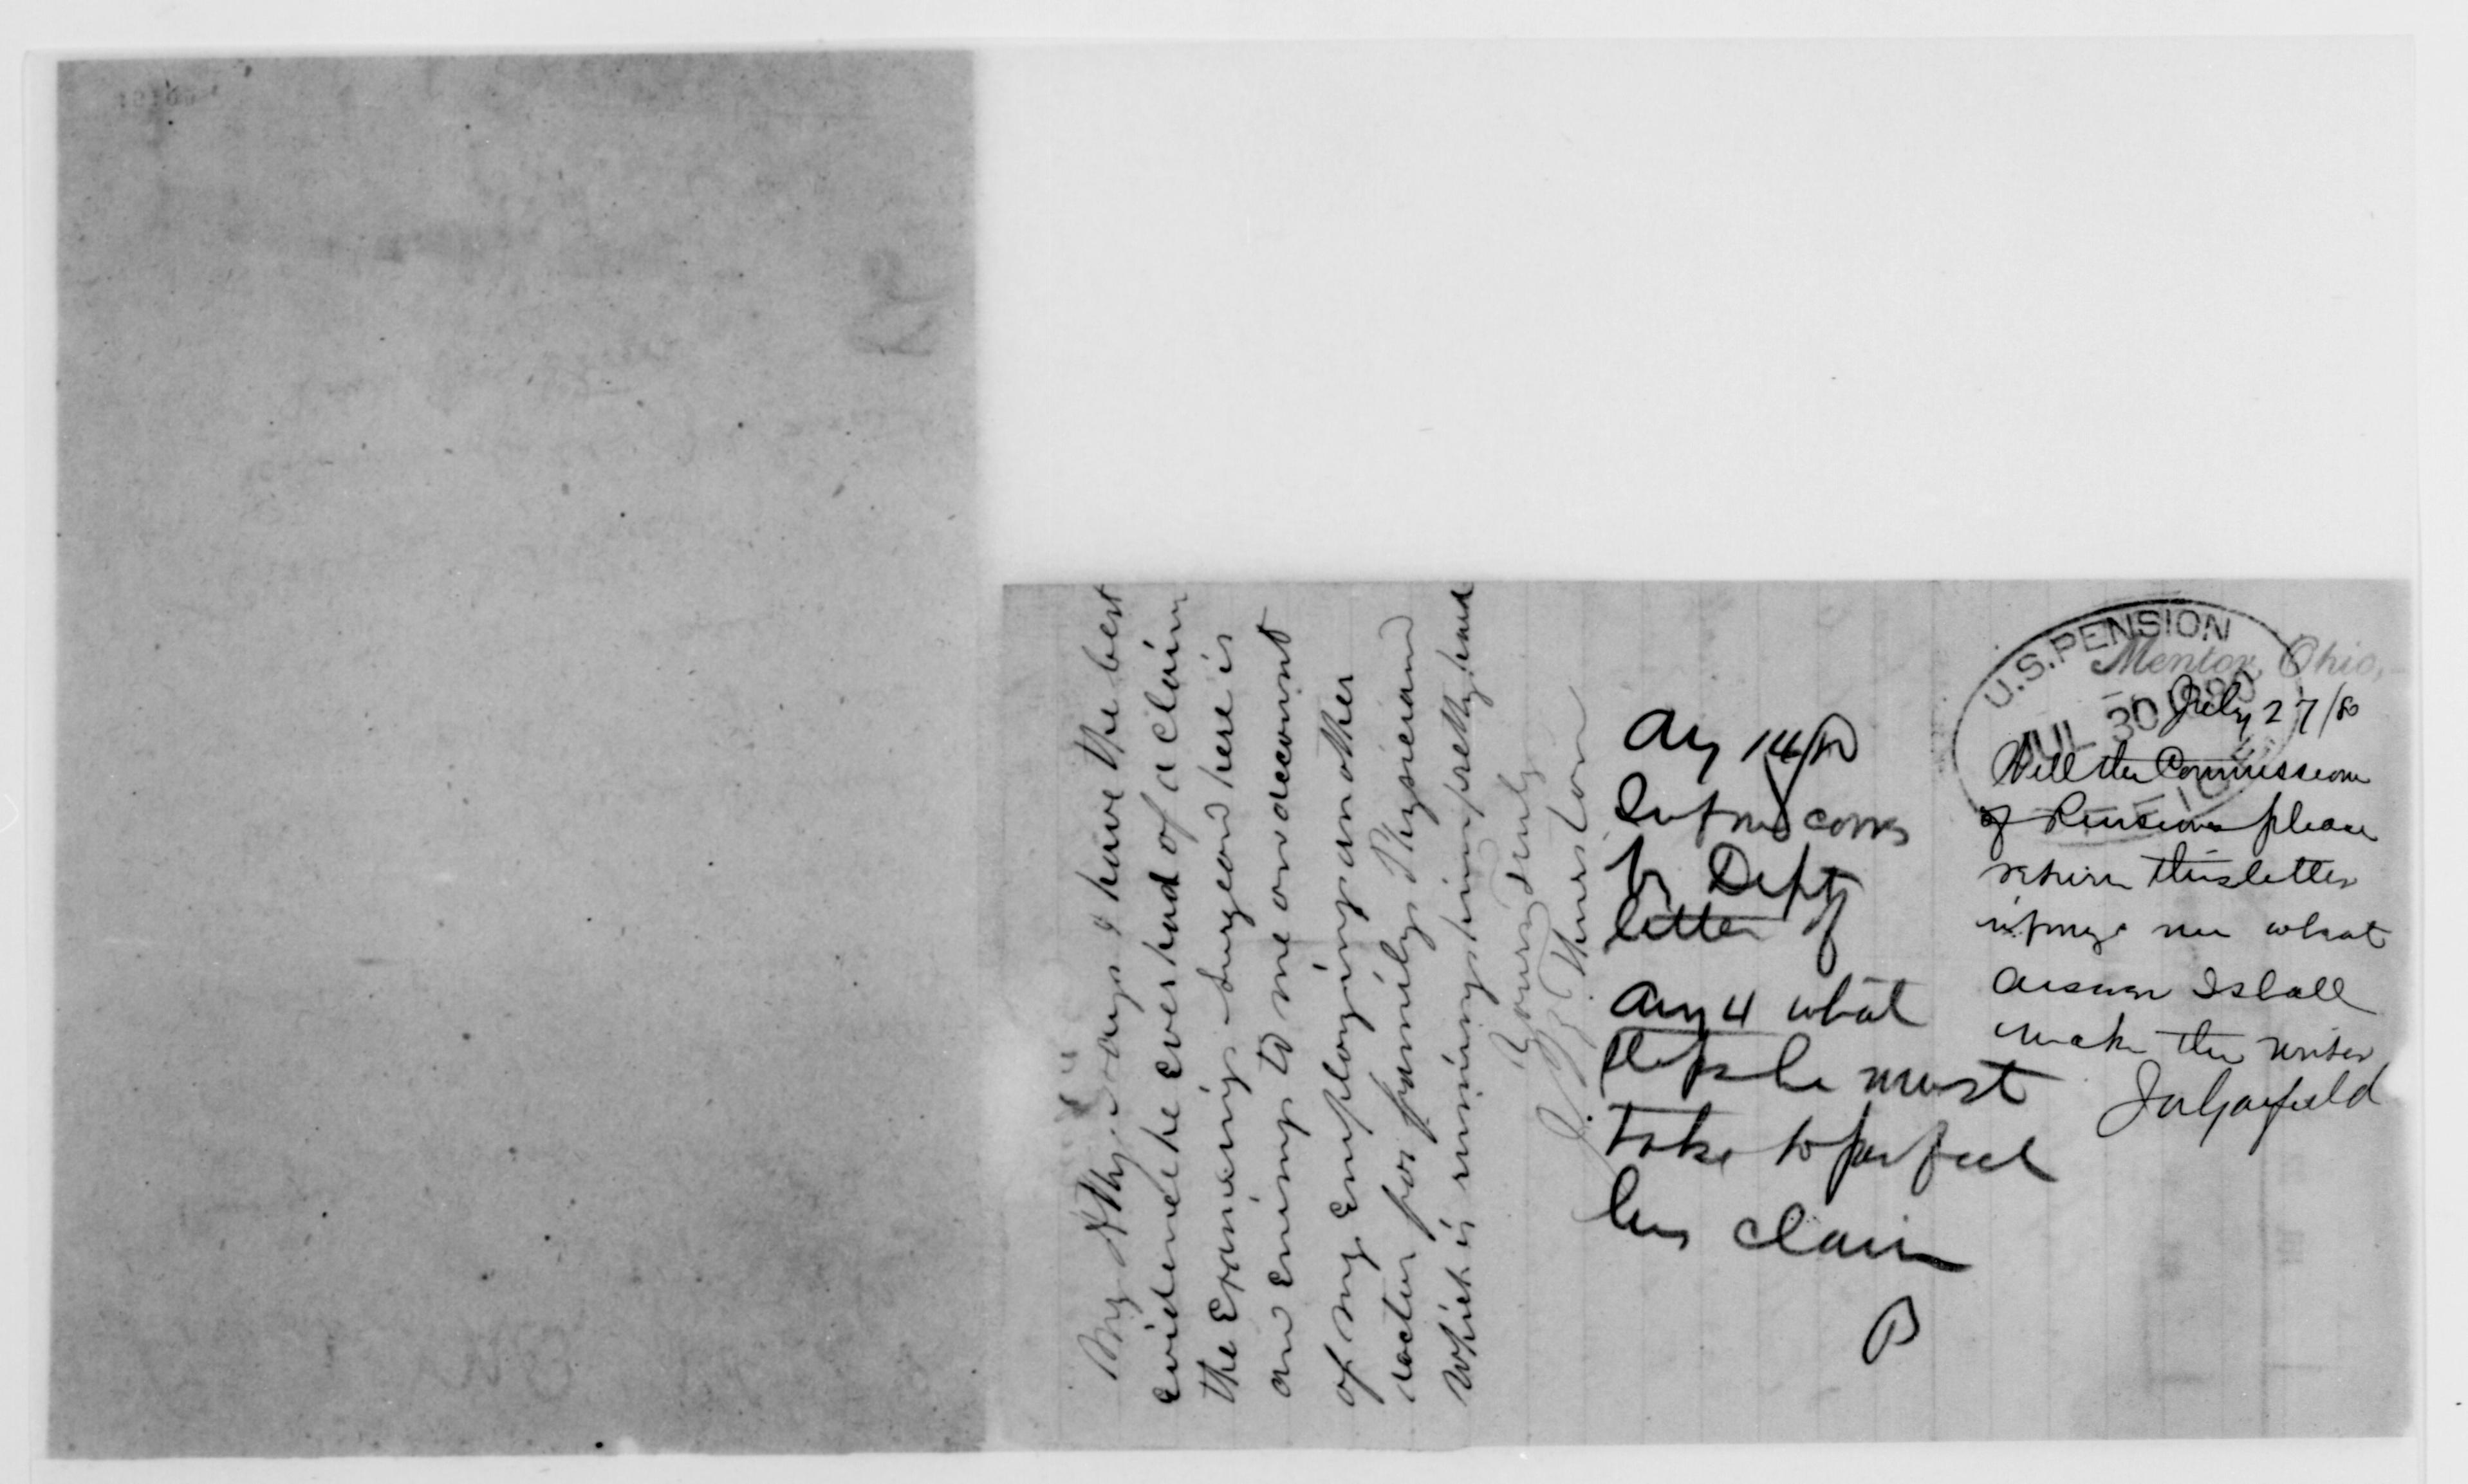 My Atty says I have the best
evidence he ever had of a claim
the Examining Surgeon here is
an Enimy to me on account
of my Employing another
doctor for family Physician
which is running him pretty hard
Yours truly
Thurston
Aug 14/80
Inf
Dept
letter of
Aug 4 what
steps he must
take to perfect
his claim
B
U.S. PENSION
JUL 30 1880
OFFICE
Mentor, Ohio,
July 27/80
Will the Commissioner
of Pensions please
return this letter
me what
answer I shall
make the writer
JAGarfield